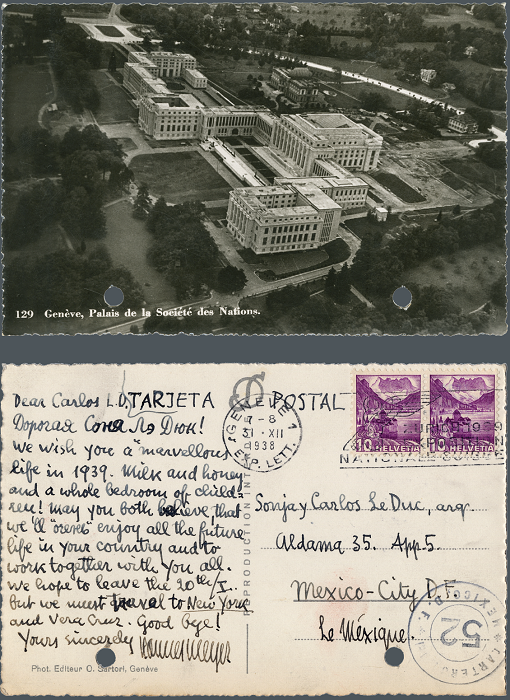 129 Genève, Palais de la Société des Nations.
TARJETA POSTAL
Dear Carlos L.D,
Дорогая Соня Ля Дюк!
we wish you a "marvellous"
life in 1939. Milk and honey
and a whole bedroom of child-
ren! may you both believe that
we'll enjoy all the future
life in your country and to
work together with you all.
we hope to leave the 20th/I..
but we must travel to New York
and Vera Cruz. Good bye!
Yours sincerely hannesmeyer
Phot. Editeur O. Sartori, Genève
GENEVE 1
7-8
31·XII
1938
EXP. LETT.
1939
NATIONALE SUISSE
10 HELVETIA
10 HELVETIA
Sonja y Carlos Le Duc, arq.
Aldama 35. App 5.
Mexico-City D.F.
Le Méxique.
MEXICO D.F.
52
CARTERO